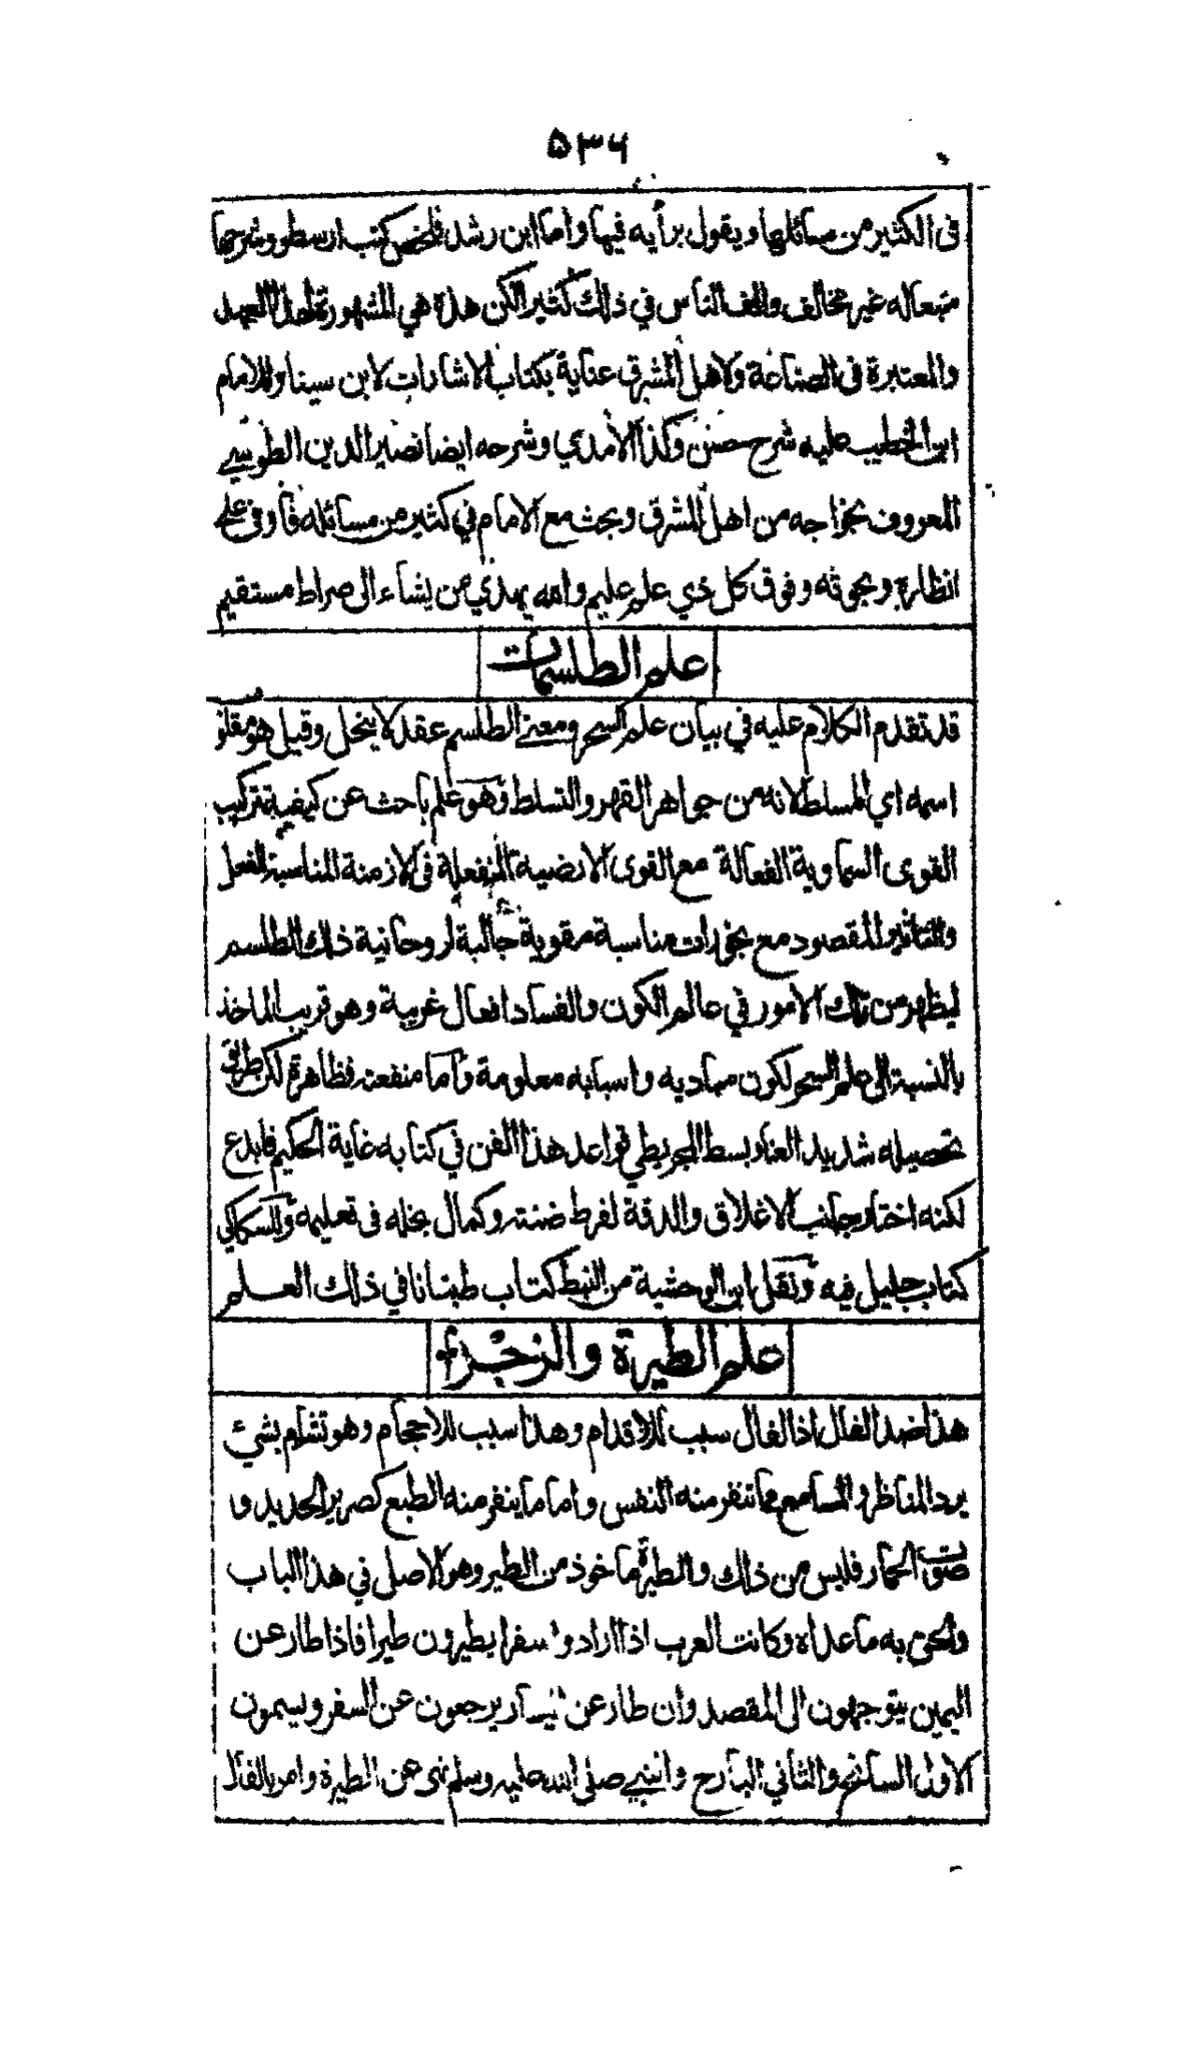 ۵۳۶
فى الكثير من مسائلها ويقول برأيه فيها واما ابن رشد فلخص كتب ارسطو وشرحها
متبعا له غير مخالف والف الناس في ذلك كثيرا لكن هذه هي المشهورة لهذا العهد
والمعتبرة فى الصناعة ولاهل المشرق عناية بكتاب الاشارات لابن سينا وللامام
ابن الخطيب عليه شرح حسن وكذا الآمدي وشرحه ايضا نصير الدين الطوسي
المعروف بخواجه من اهل المشرق وبحث مع الامام في كثير من مسائله فأوفى على
انظاره وبحوثه وفوق كل ذي علم عليم والله يهدي من يشاء الى صراط مستقيم
علم الطلسمات
قد تقدم الكلام عليه في بيان علم السحر ومعنى الطلسم عقد لا ينحل وقيل هو مقلوب
اسمه اي المسلط لانه من جواهر القهر والتسلط وهو علم باحث عن كيفية تركيب
القوى السماوية الفعالة مع القوى الارضية المنفعلة فى الازمنة المناسبة للفعل
والتاثير المقصود مع بخورات مناسبة مقوية جالبة لروحانية ذلك الطلسم
ليظهر من تلك الامور في عالم الكون والفساد افعال غريبة وهو قريب الماخذ
بالنسبة الى علم السحر لكون مباديه واسبابه معلومة وأما منفعته فظاهرة لكن طرق
تحصيله شديد العنا وبسط المجريطي قواعد هذا الفن في كتابه غاية الحكيم فابدع
لكنه اختار جانب الاغلاق والدقة لفرط ضنته وكمال بخله فى تعليمه وللسكاكي
كتاب جليل فيه ونقل ابن الوحشية من النبط كتاب طبتانا في ذلك العلم
علم الطيرة والزجر
هذا ضد الفال اذ الفال سبب للاقدام وهذا سبب للاحجام وهو تشأم بشئ
يرد المناظر والمسامع مما تنفر منه النفس واما ما ينفر منه الطبع كصرير الحديد و
صوت الحمار فليس من ذلك والطيرة ماخوذ من الطير وهو الاصل في هذا الباب
والحق به ما عداه وكانت العرب اذا ارادوا سفرا يطيرون طيرا فاذا طار عن
اليمين يتوجهون الى المقصد وان طار عن يسار يرجعون عن السفر ويسمون
الاول السانح والثاني البارح والنبي صلى الله عليه وسلم نهى عن الطيرة وامر بالفال